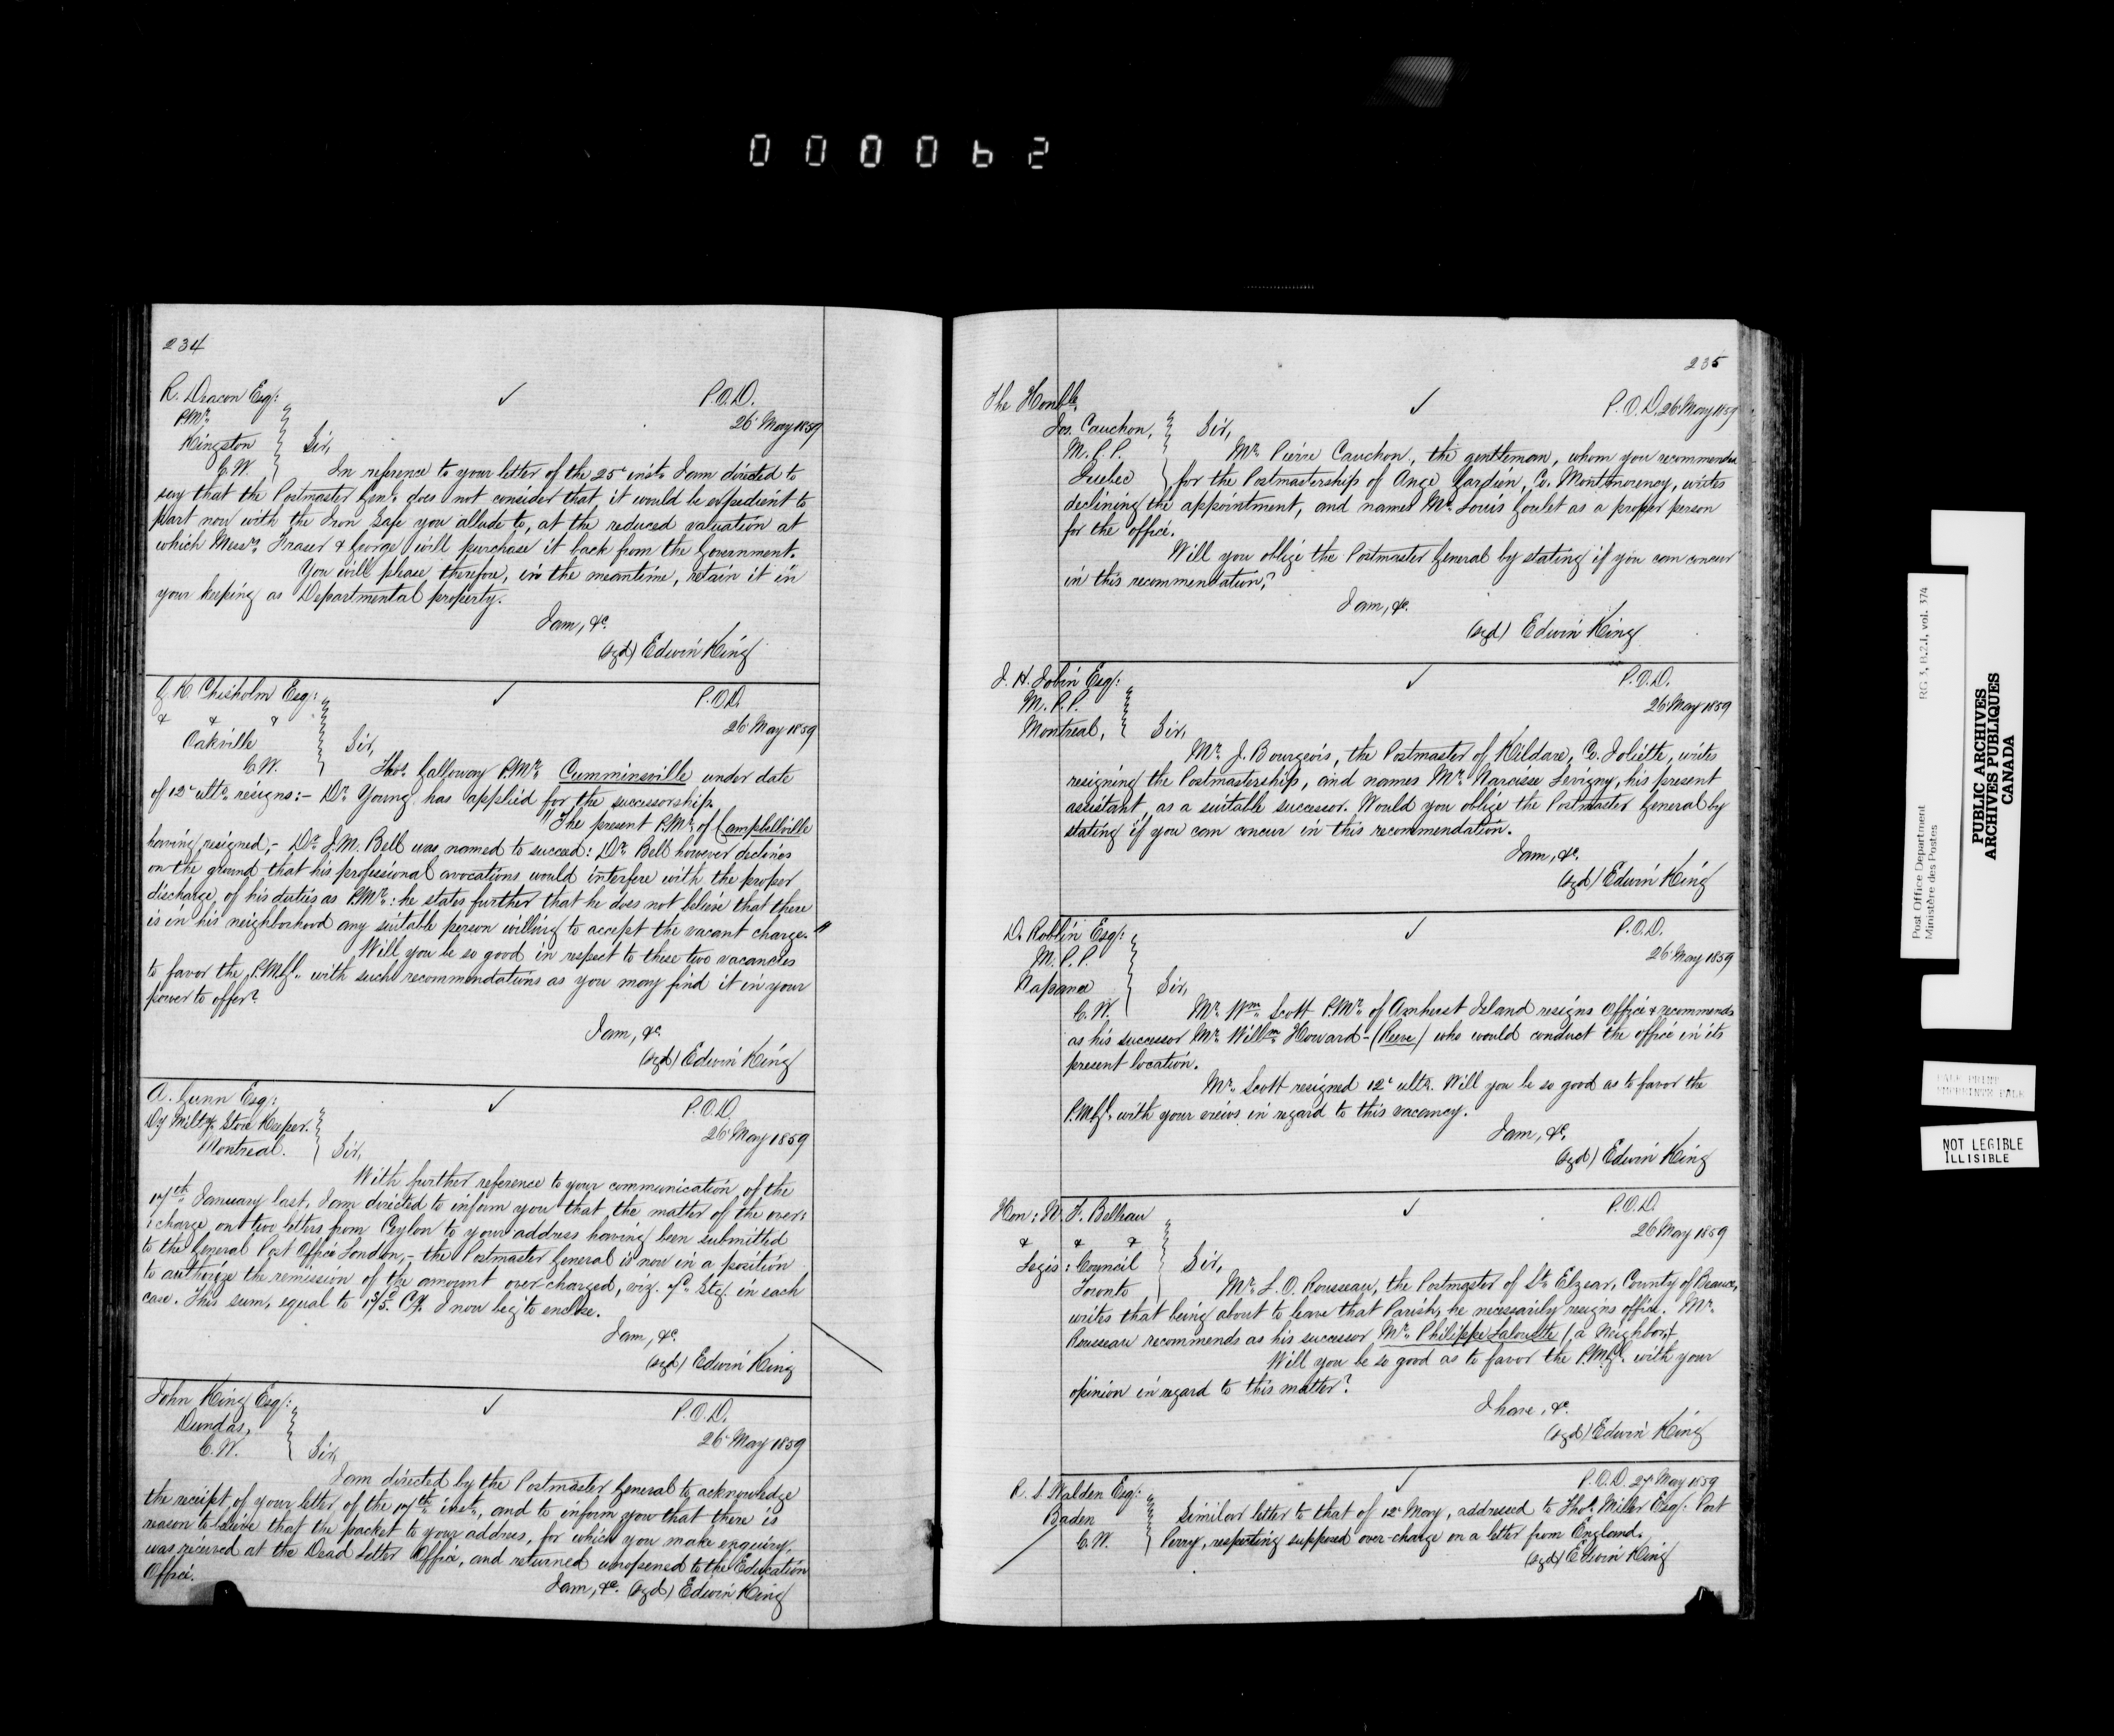 000062
234
R. Deacon Esq:
P.Mr.
Kingston
C.W.
✓
P.O.D.
26 May 1859
Sir,
In reference to your letter of the 25 inst. I am directed to
say that the Postmaster Genl. does not consider that it would be expedient to
part now with the Iron Safe you allude to, at the reduced valuation at
which Messrs. Fraser & George will purchase it back from the Government.
You will please therefore, in the meantime, retain it in
your keeping as Departmental property.
I am, &c.
(sgd) Edwin King
K. Chisholm Esq:
& & &
Oakville
C.W.
✓
P.O.D.
26 May 1859
Sir,
Thos. Galloway P.Mr. Cumminsville under date
of 12 ulto. resigns:- Dr. Young has applied for the successorship.
"The present P.Mr. of Campbellville
having resigned,- Dr. J.M. Bell was named to succeed: Dr. Bell however declines
on the ground that his professional avocations would interfere with the proper
discharge of his duties as P.Mr.: he states further that he does not believe that there
is in his neighborhood any suitable person willing to accept the vacant charge."
Will you be so good in respect to these two vacancies
to favor the P.M.Gl. with such recommendations as you may find it in your
power to offer?
I am, &c.
(sgd) Edwin King
A. Gunn Esq:
Dy Milty. Store Keeper.
Montreal.
✓
P.O.D.
26 May 1859
Sir,
With further reference to your communication of the
17th. January last, I am directed to inform you that the matter of the over:
:charge on two letters from Ceylon to your address having been submitted
to the General Post Office London,- the Postmaster General is now in a position
to authorize the remission of the amount over charged, viz. 7d. Stg. in each
case. This sum, equal to 1s/5d. Cy. I now beg to enclose.
I am, &c.
(sgd) Edwin King
John King Esq:
Dundas,
C.W.
✓
P.O.D.
26 May 1859
Sir,
I am directed by the Postmaster General to acknowledge
the receipt of your letter of the 17th. inst., and to inform you that there is
reason to believe that the packet to your address, for which you make enquiry,
was received at the Dead Letter Office, and returned unopened to the Education
Office.
I am, &c. (sgd) Edwin King
235
The Honble.
Jos. Cauchon,
M.P.P.
Quebec
✓
P.O.D. 26 May 1859
Sir,
Mr. Pierre Cauchon, the gentleman, whom you recommended
for the Postmastership of Ange Gardien, Co. Montmorency, writes
declining the appointment, and names Mr. Louis Goulet as a proper person
for the office.
Will you oblige the Postmaster General by stating if you can concur
in this recommendation?
I am, &c.
(sgd) Edwin King
J. H. Jobin Esq:
M.P.P.
Montreal,
✓
P.O.D.
26 May 1859
Sir,
Mr. J. Bourgeois, the Postmaster of Kildare, Co. Joliette, writes
resigning the Postmastership, and names Mr. Narcisse Levigny, his present
assistant, as a suitable successor. Would you oblige the Postmaster General by
stating if you can concur in this recommendation.
I am, &c.
(sgd) Edwin King
D. Roblin Esq:
M.P.P.
Napanee
C.W.
✓
P.O.D.
26 May 1859
Sir,
Mr. Wm. Scott P.Mr. of Amherst Island resigns Office & recommends
as his successor Mr. Willm. Howard - (Reeve) who would conduct the office in its
present location.
Mr. Scott resigned 12 ulto. Will you be so good as to favor the
P.M.Gl. with your views in regard to this vacancy.
I am, &c.
(sgd) Edwin King
Hon: N. F. Belleau
& & &
Legis: Council
Toronto
✓
P.O.D.
26 May 1859
Sir,
Mr. L. O. Rousseau, the Postmaster of St. Elzear, County of Beauce,
writes that being about to leave that Parish, he necessarily resigns office. Mr.
Rousseau recommends as his successor Mr. Philippe (a Neighbor).
Will you be so good as to favor the P.M.Gl. with your
opinion in regard to this matter?
I have, &c.
(sgd) Edwin King
R. S. Walden Esq:
Baden
C.W.
✓
P.O.D. 27 May 1859
Similar letter to that of 12 May, addressed to Thos. Miller Esq: Port
Perry, respecting supposed over-charge on a letter from England.
(sgd) Edwin King
Post Office Department
Ministère des Postes
RG 3, B.2.1, vol. 374
PUBLIC ARCHIVES
ARCHIVES PUBLIQUES
CANADA
NOT LEGIBLE
ILLISIBLE